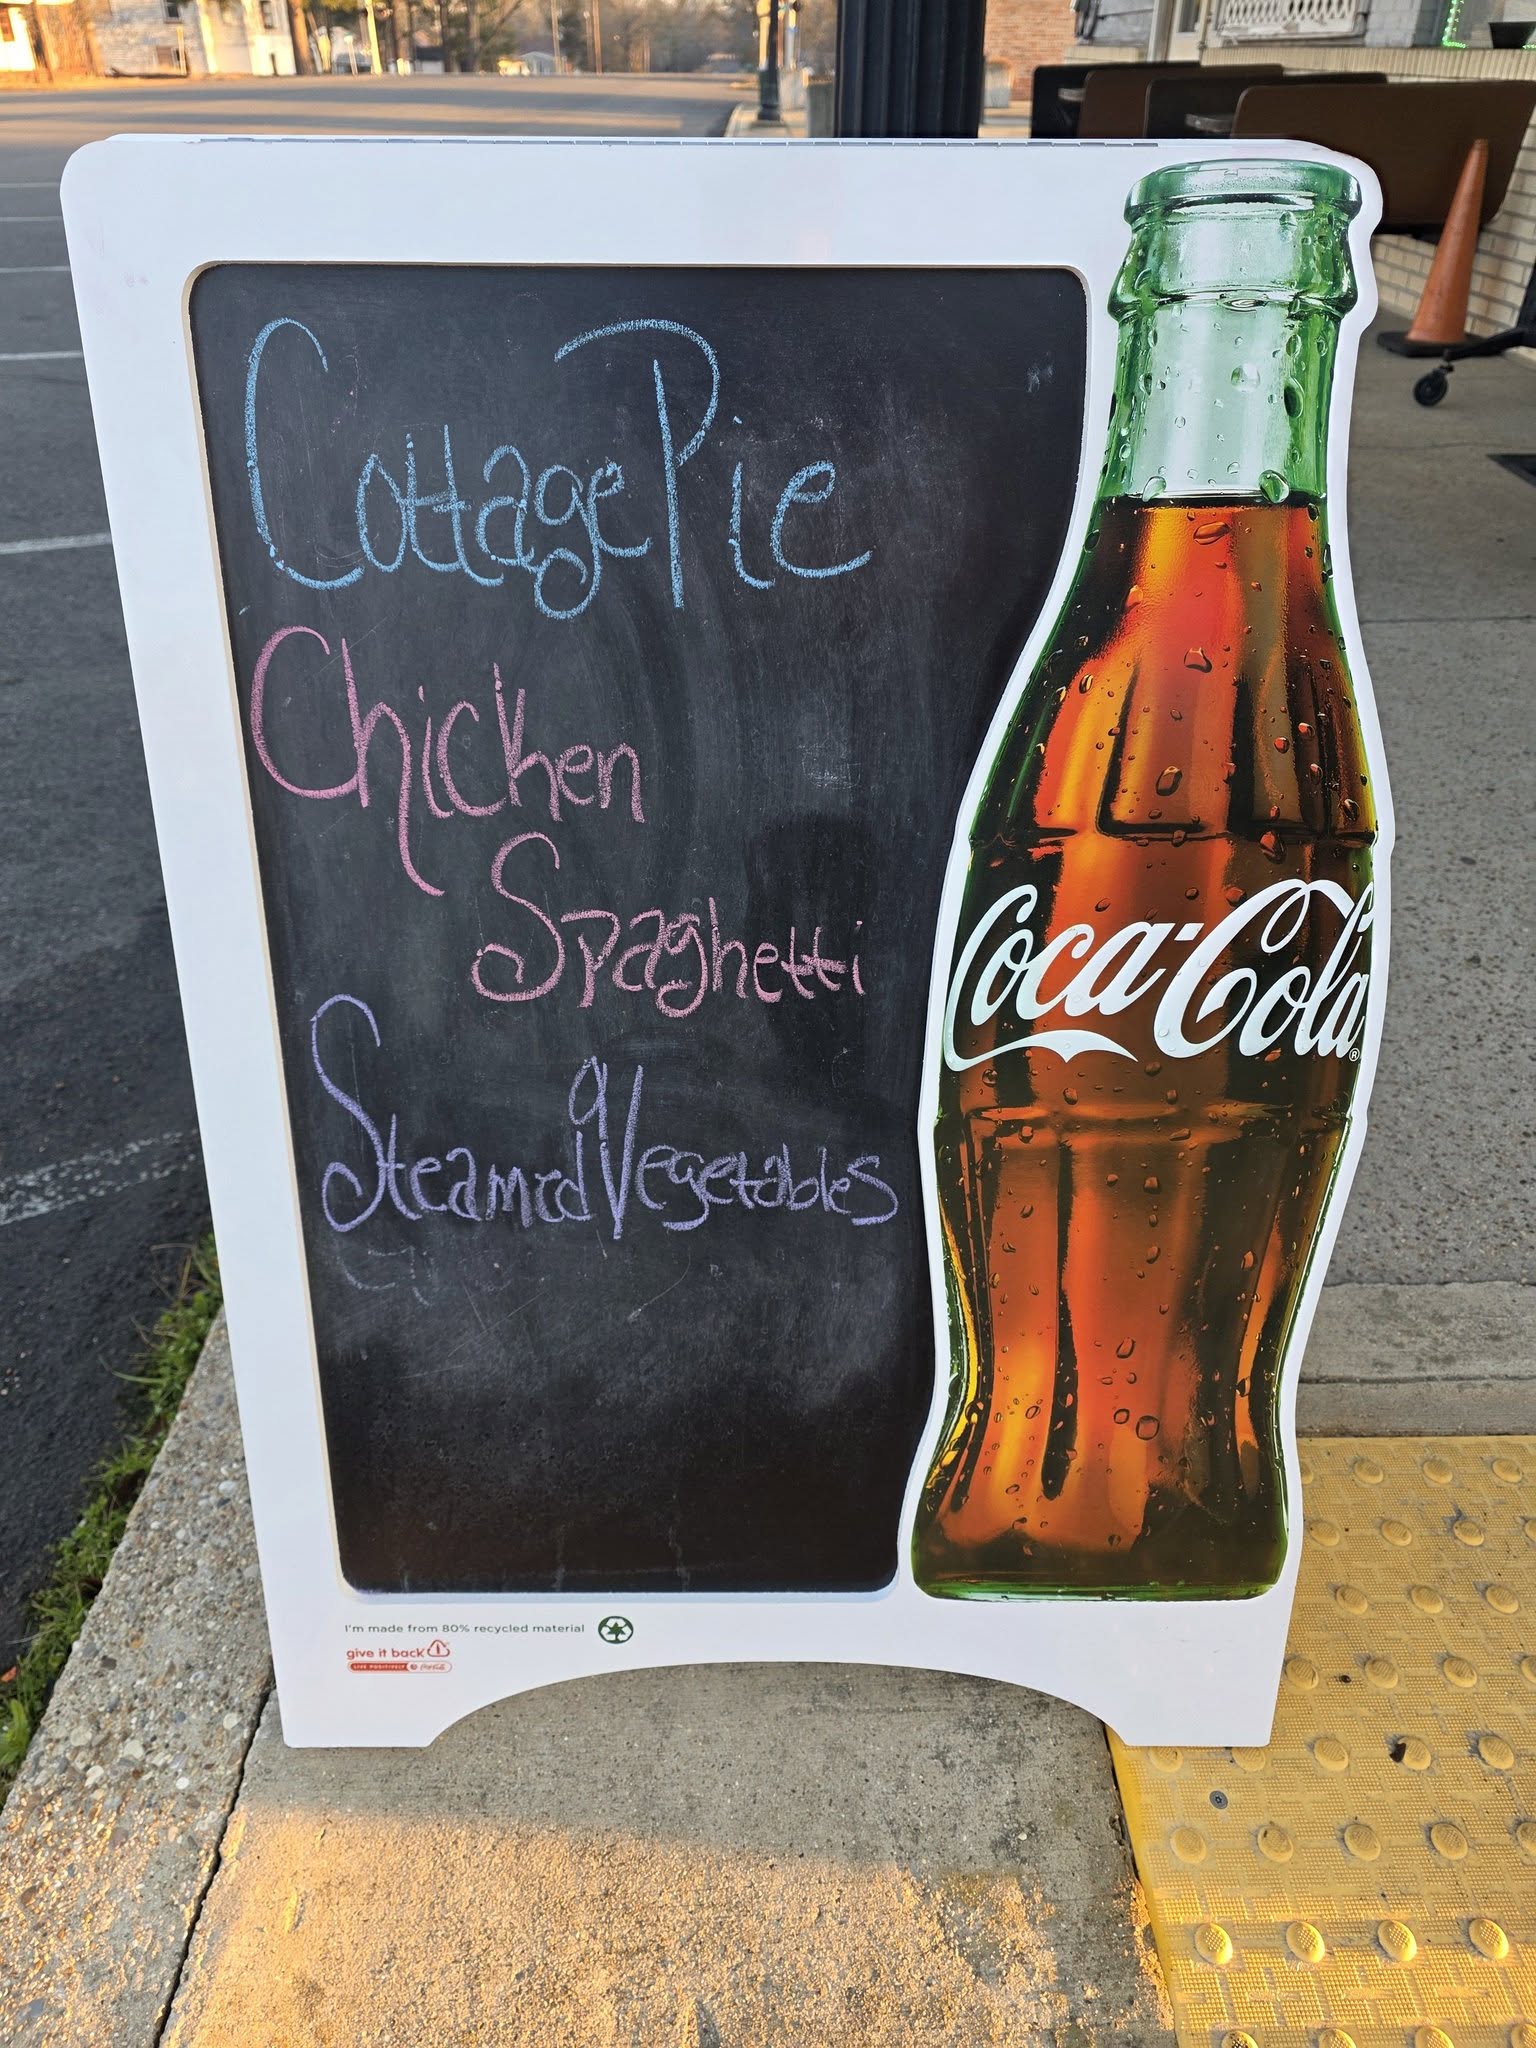 Cottage Pie
Chicken
Spaghetti
Steamed Vegetables
Coca-Cola®
I'm made from 80% recycled material
give it back
LIVE POSITIVELY Coca-Cola